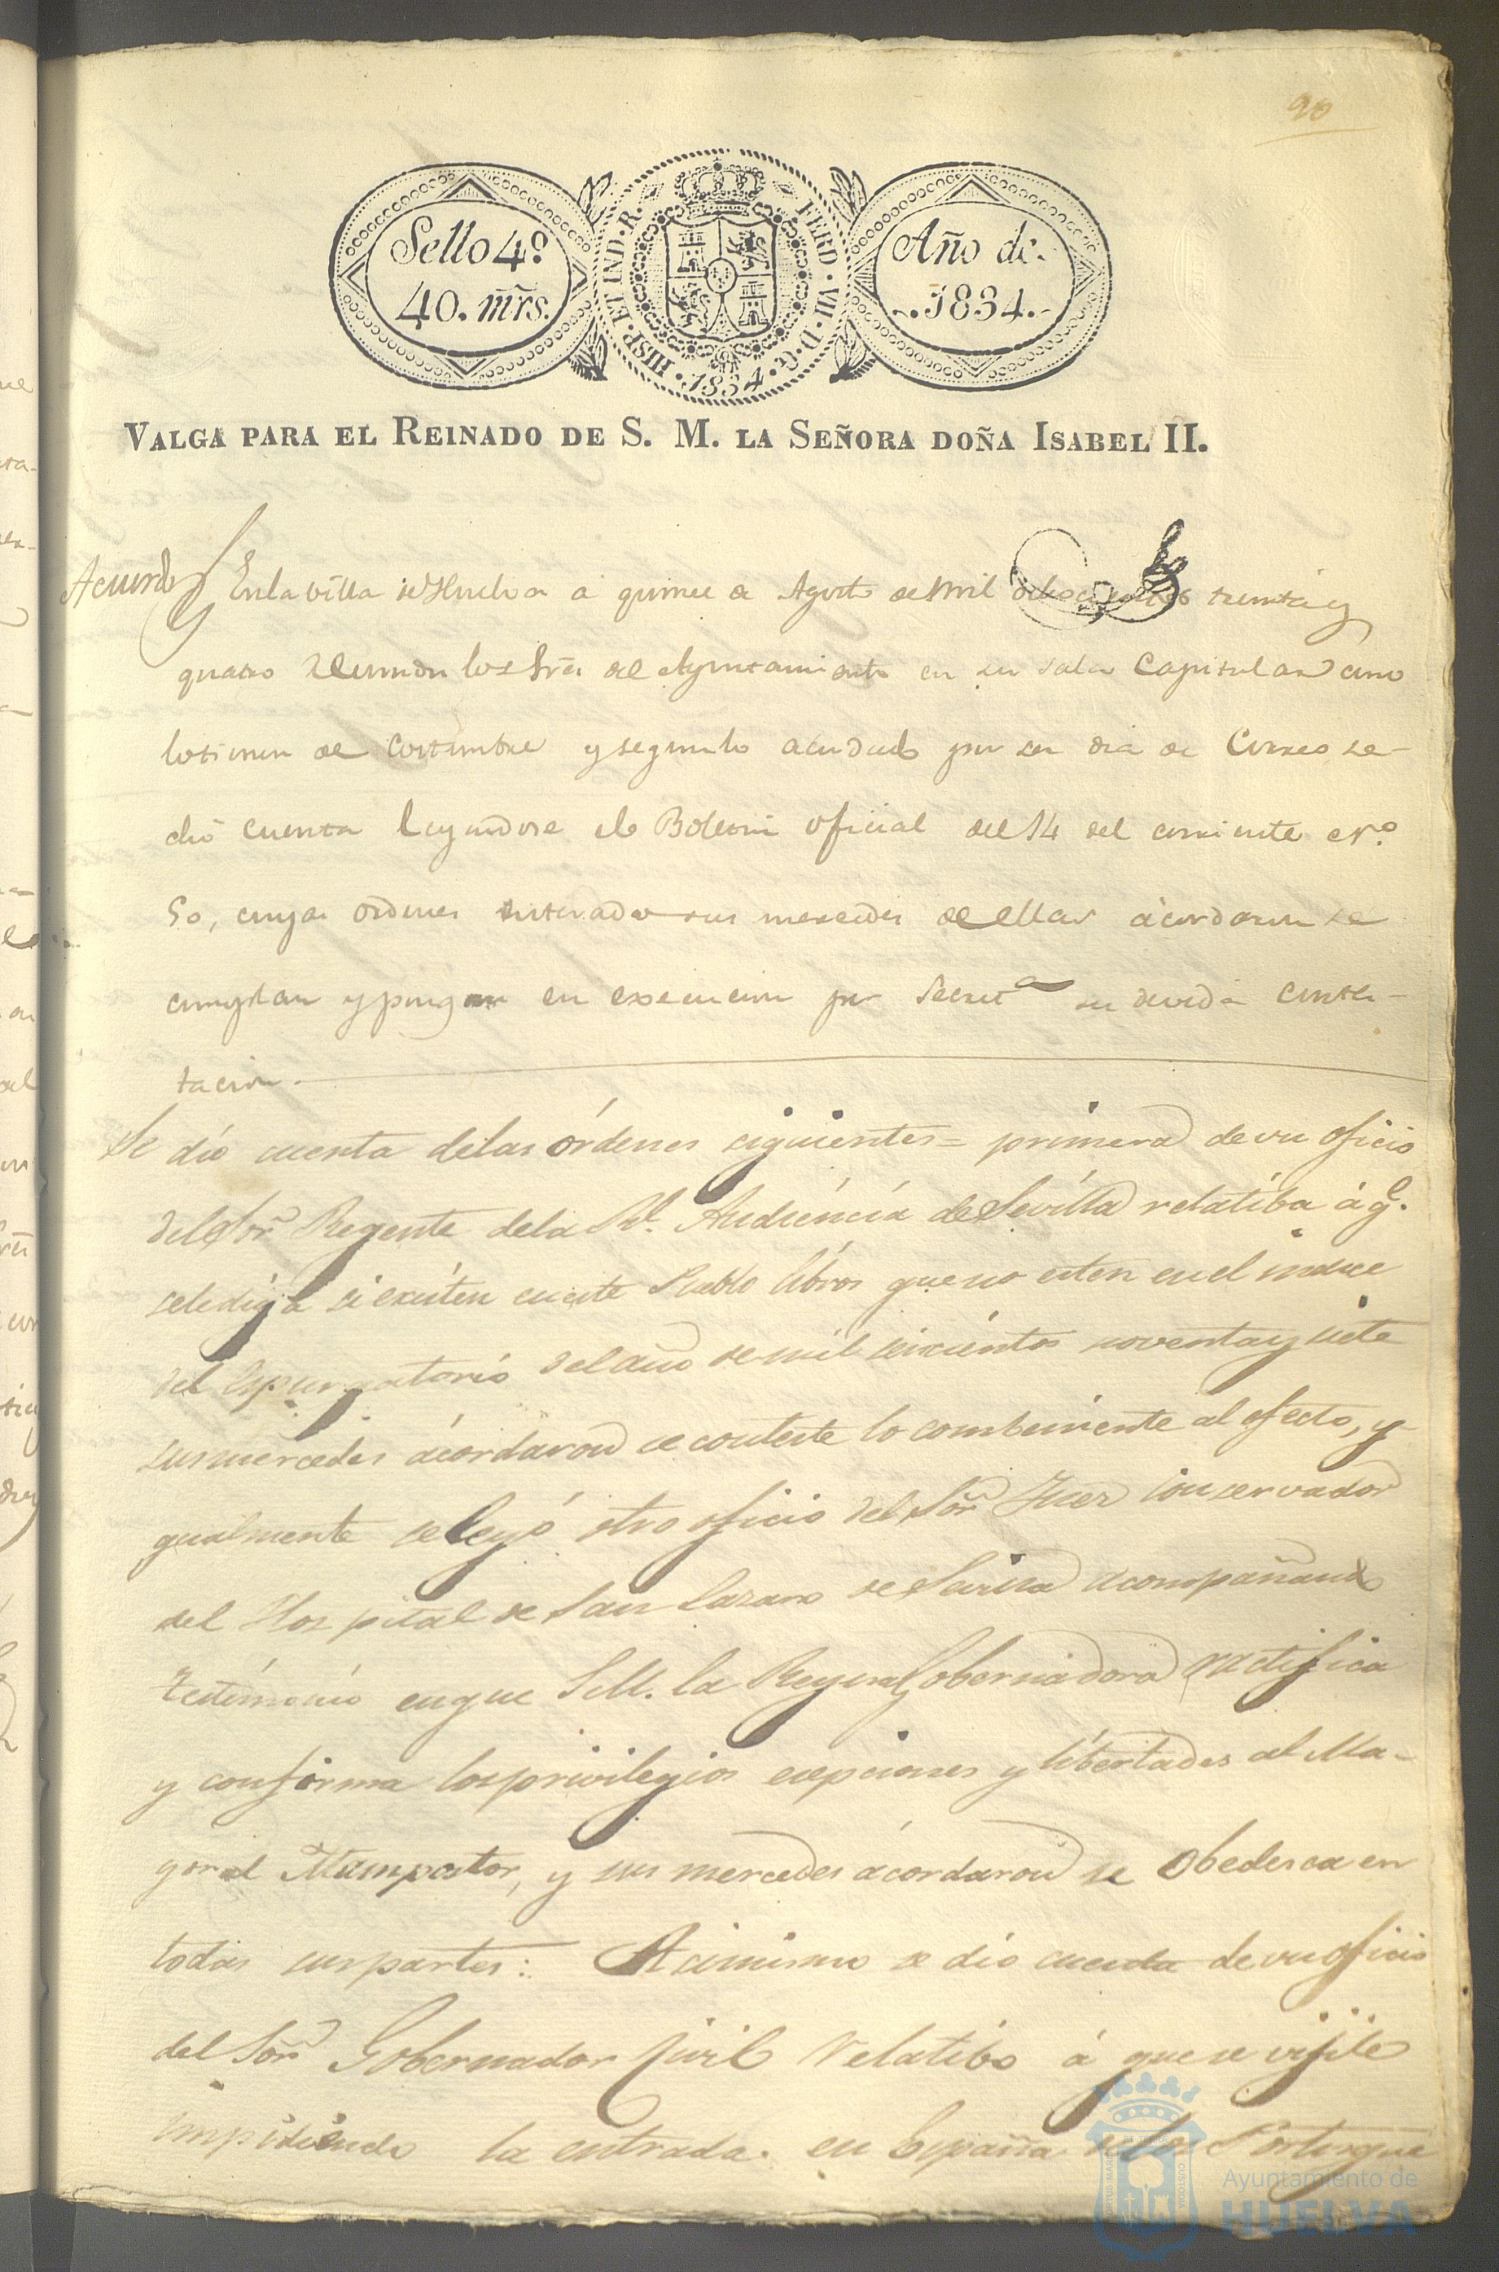 90
Sello 4º
40. mrs.
HISP. ET IND. R. FERD. VII. D. G. 1834.
Año de
1834.
VALGA PARA EL REINADO DE S. M. LA SEÑORA DOÑA ISABEL II.
Acuerdo En la villa de Huelva a quince de Agosto de Mil ochocientos treinta y
quatro Reunidon los Sres del Ayuntamiento en su sala Capitular como
lo tienen de costumbre y segun lo acordado por ser dia de Correo se
dio cuenta leyendose el Boletin oficial del 14 del corriente nº
50, cuyas ordenes enterados sus mercedes de ellas acordaron se
cumplan y pongan en execucion por Secretª su devida contes-
tacion.
Se dió cuenta de las órdenes siguientes = primera de un oficio
del Sor. Regente de la Rl. Audiéncia de Sevilla relatíba á q.e
se le diga si exísten en este Pueblo líbros que no esten en el indice
del Espurgatorio del año de mil seiscientos noventa y siete
sus mercedes ácordaron se conteste lo combeniente al efecto, y
gualmente se leyó otro oficio del Sor. Juez Conservador
del Hospital de San Lazaro de Sevilla acompañando
testimonio en que S.M. la Reyna Gobernadora ractifica
y confirma los privilegios ecepciones y libertades al Ma-
yoral Mampostor, y sus mercedes ácordaron se Obedesca en
todas sus partes: Acimismo se dió cuenta de un oficio
del Sor. Gobernador Civil relatibo á que se vijile
impidiendo la entrada en España de los Portugue
Ayuntamiento de
HUELVA